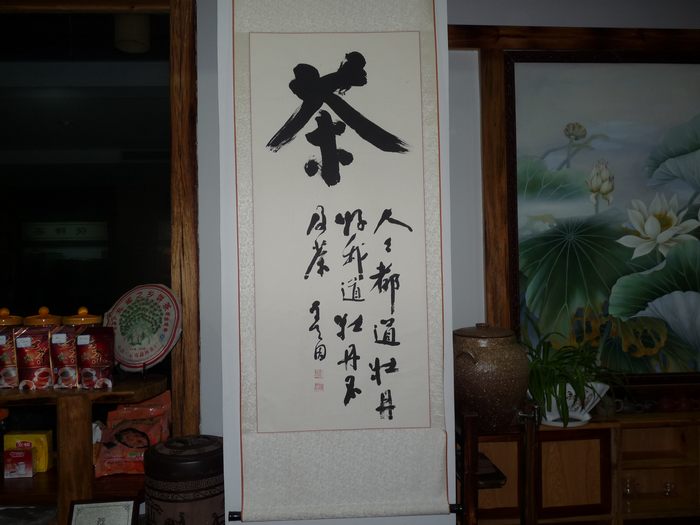 茶
人人都道牡丹
好我道牡丹不
及茶